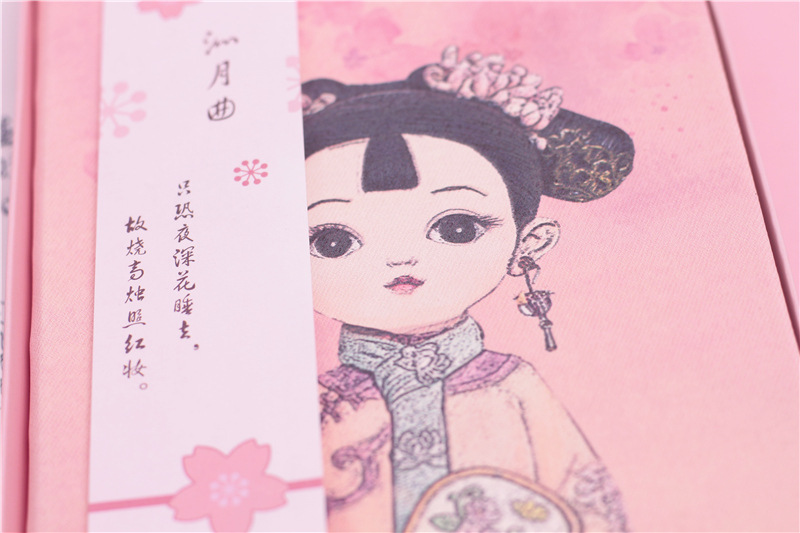 沁月曲
只恐夜深花睡去，
故烧高烛照红妆。